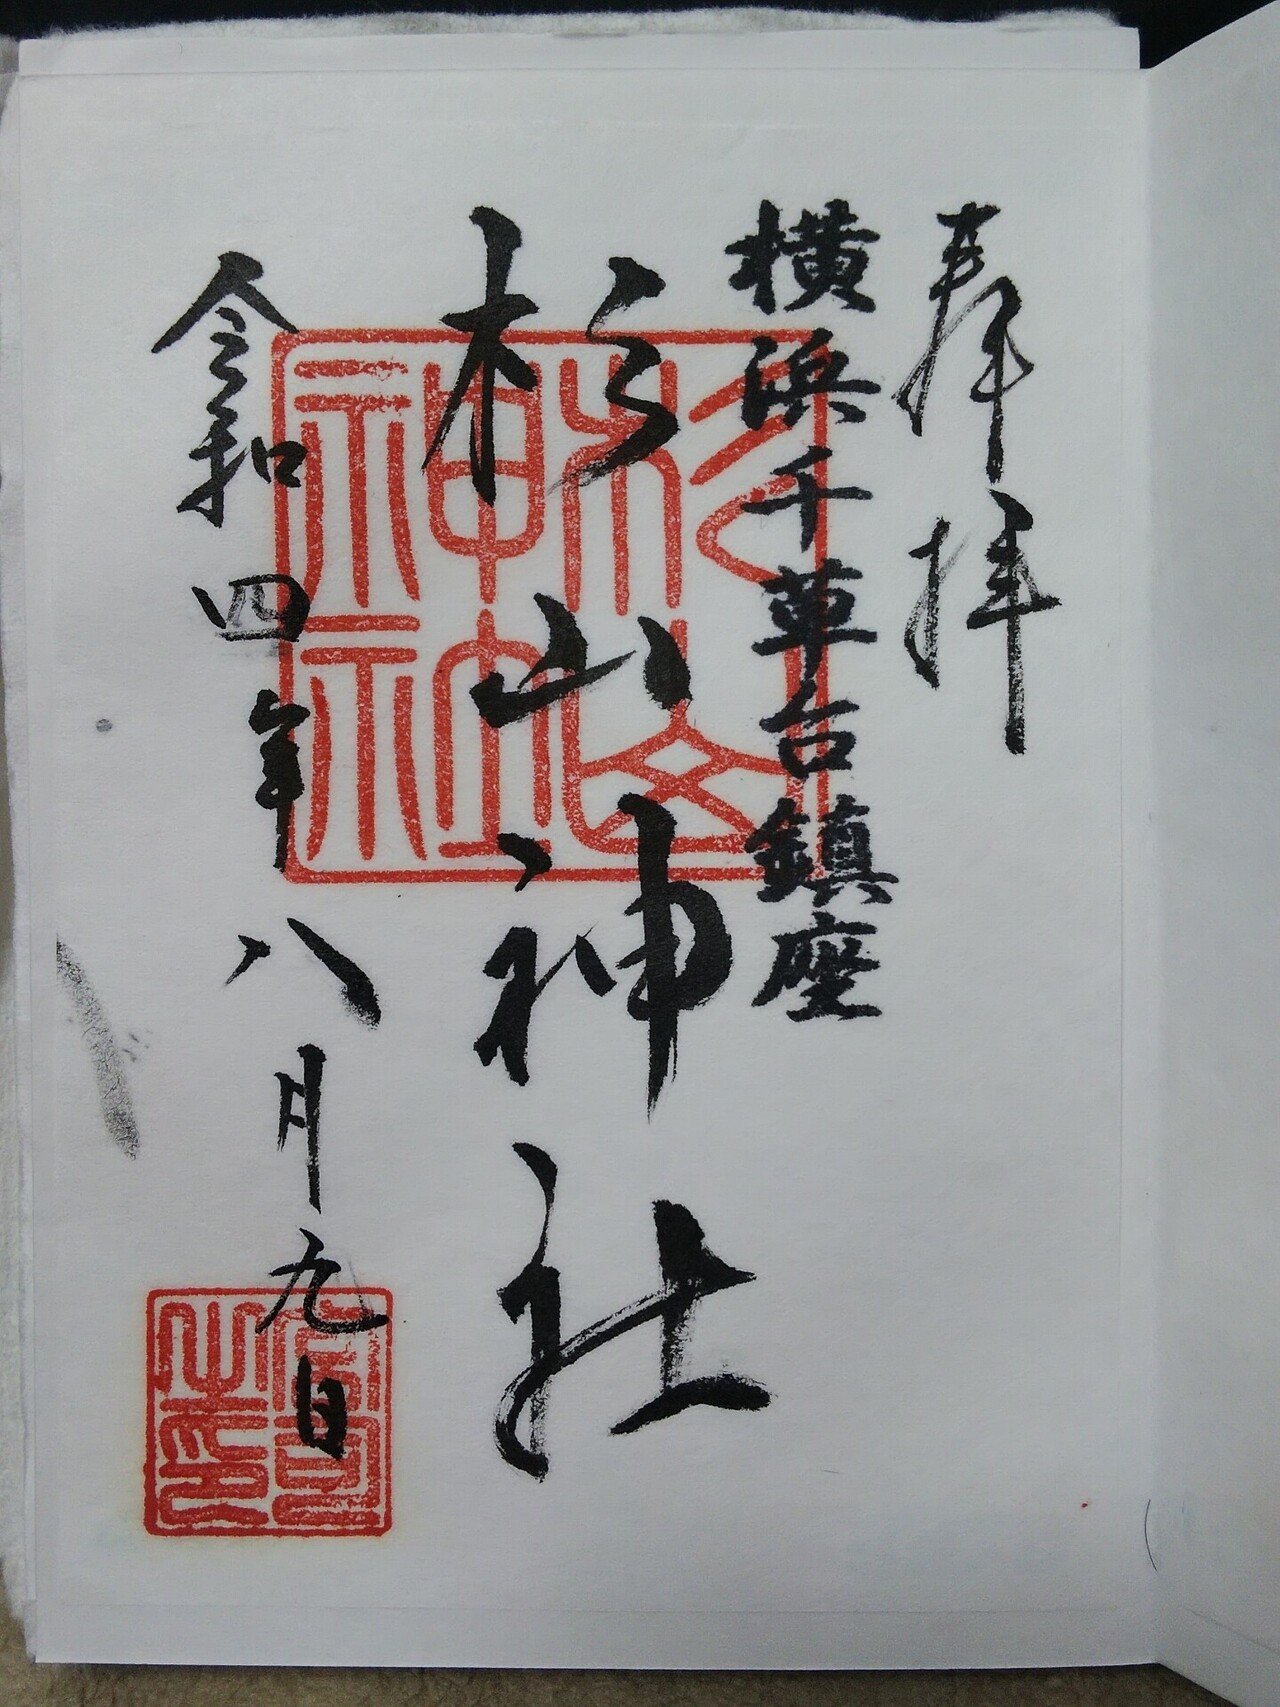 奉拝
横浜千草台鎮座
杉山神社
令和四年八月九日
杉山神社
宮司之印